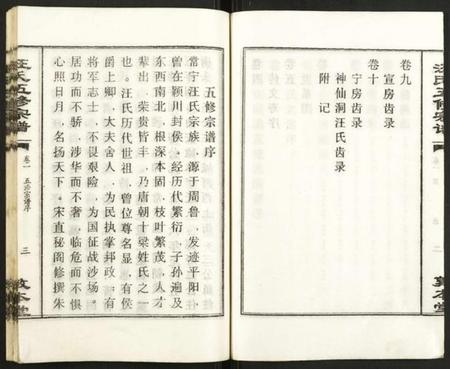 汪氏五修宗谱
卷九
宣房齿录
宁房齿录
卷十
神仙洞汪氏齿录
附记
敦本堂
五修宗谱序
常宁汪氏宗族，源于周鲁，发迹平阳，
曾在颍川封侯，经历代繁衍，子孙遍及
东西南北，根深本固，枝叶繁茂，人才
辈出，荣贵皆丰，乃唐朝十梁姓氏之一
也。汪氏历代世祖，曾位尊名显，有侯
爵上卿，大夫舍人，为民执掌邦政，有
将军志士，不畏艰险，为国征战涉场。
居功而不骄，涉华而不奢，临危而不惧
心照日月，名扬天下。宋直秘阁修撰朱
汪氏五修宗谱
卷一
五修宗谱序
三
敦本堂